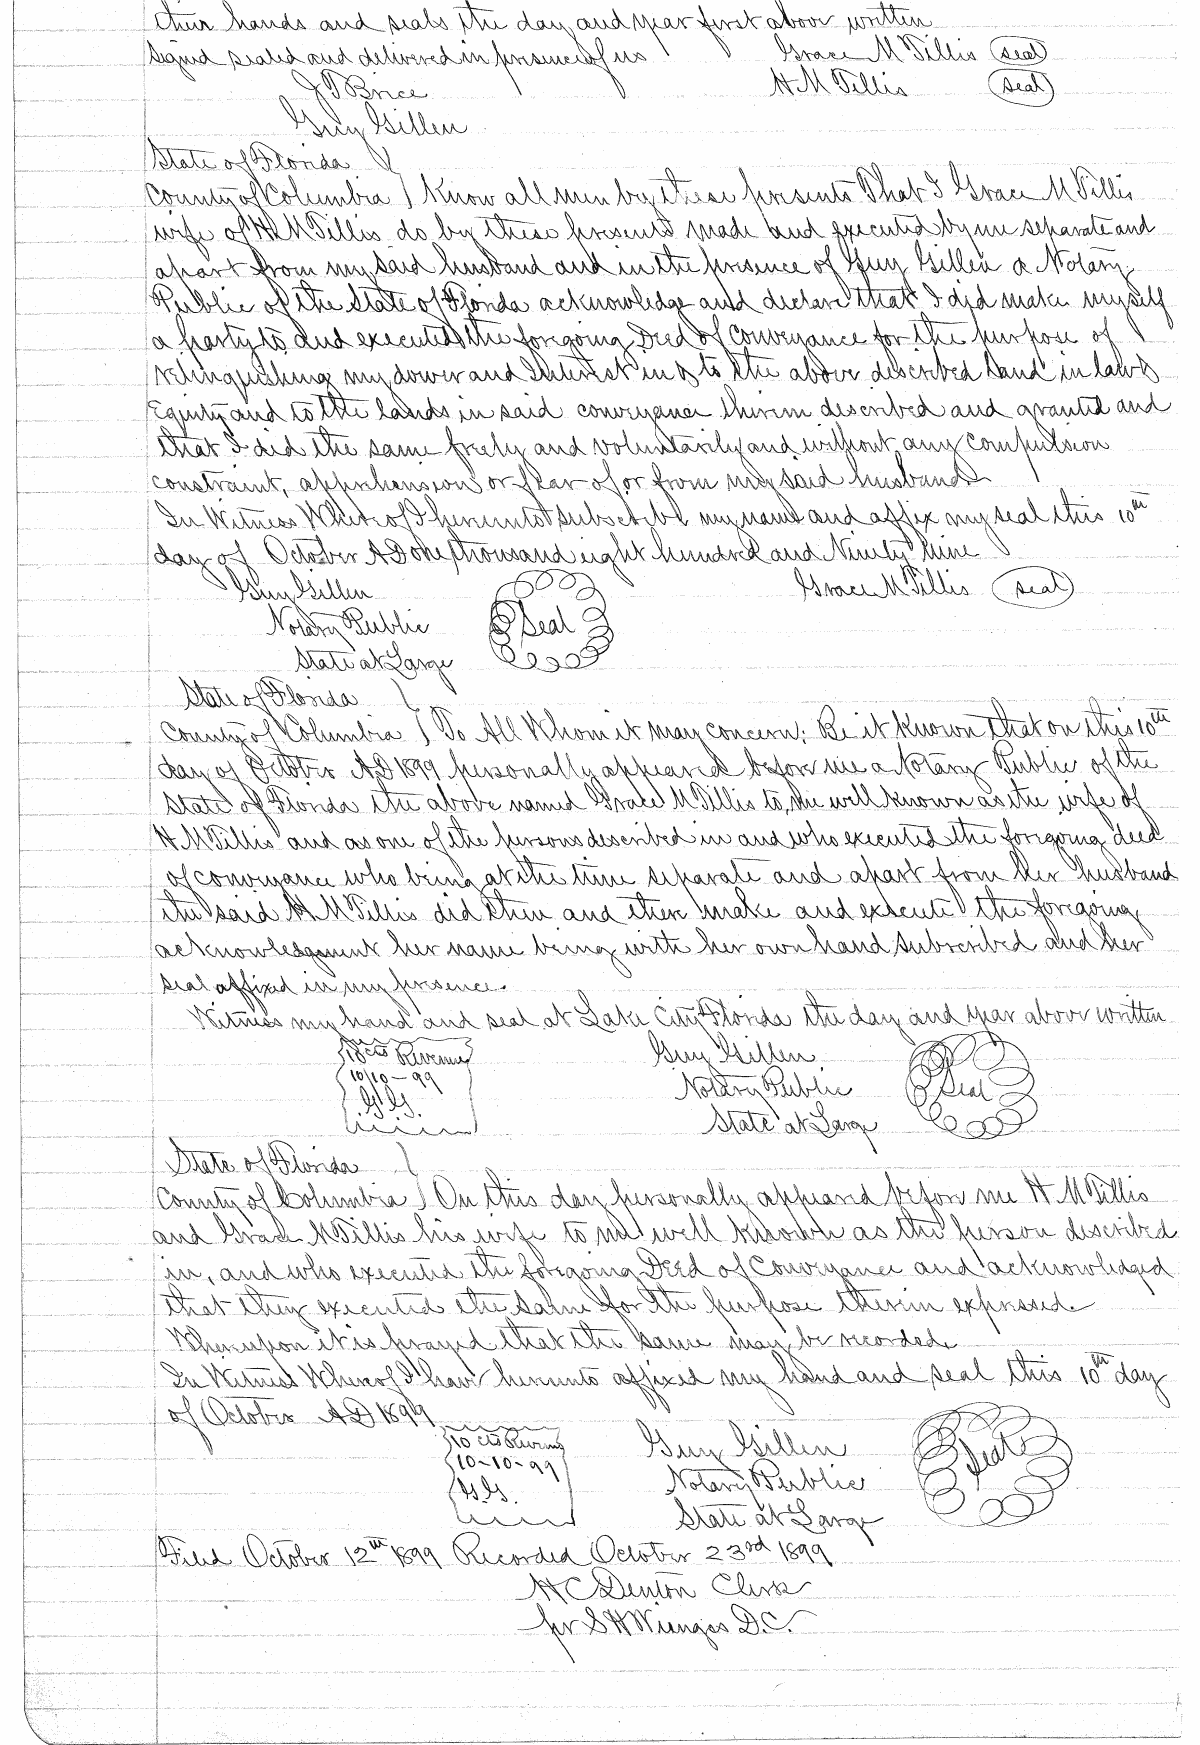 their hands and seals the day and year first above written
Signed sealed and delivered in presence of us Grace M Tillis (seal)
J T Brice H M Tillis (seal)
Guy Gillen
State of Florida
County of Columbia } Know all men by these presents That I Grace M Tillis
wife of H M Tillis do by these presents made and executed by me separate and
apart from my said husband and in the presence of Guy Gillen a Notary
Public of the State of Florida acknowledge and declare that I did make myself
a party to and executed the foregoing Deed of Conveyance for the purpose of
relinquishing my dower and Interest in & to the above described Land in law &
Equity and to the lands in said conveyance therein described and granted and
that I did the same freely and voluntarily and without any compulsion
constraint, apprehension or fear of or from my said husband
In Witness Whereof I hereunto subscribe my name and affix my seal this 10th
day of October A D one thousand eight hundred and Ninety nine
Guy Gillen Grace M Tillis (seal)
Notary Public Seal
State at Large
State of Florida
County of Columbia } To All Whom it may concern; Be it known that on this 10th
day of October A D 1899 personally appeared before me a Notary Public of the
State of Florida the above named Grace M Tillis to me well known as the wife of
H M Tillis and as one of the persons described in and who executed the foregoing deed
of conveyance who being at the time separate and apart from her husband
the said H M Tillis did then and there make and execute the foregoing
acknowledgment her name being with her own hand subscribed and her
seal affixed in my presence.
Witness my hand and seal at Lake City Florida the day and year above written
cts Revenue Guy Gillen
10/10-99 Notary Public Seal
G.G. State at Large
State of Florida
County of Columbia } On this day personally appeared before me H M Tillis
and Grace M Tillis his wife to me well known as the person described
in, and who executed the foregoing Deed of Conveyance and acknowledged
that they executed the same for the purpose therein expressed
Whereupon it is prayed that the same may be recorded
In Witness Whereof I have hereunto affixed my hand and seal this 10th day
of October A D 1899
10 cts Revenue Guy Gillen Seal
10-10-99 Notary Public
G.G. State at Large
Filed October 12th 1899 Recorded October 23rd 1899
H C Denton Clerk
per S H D.C.